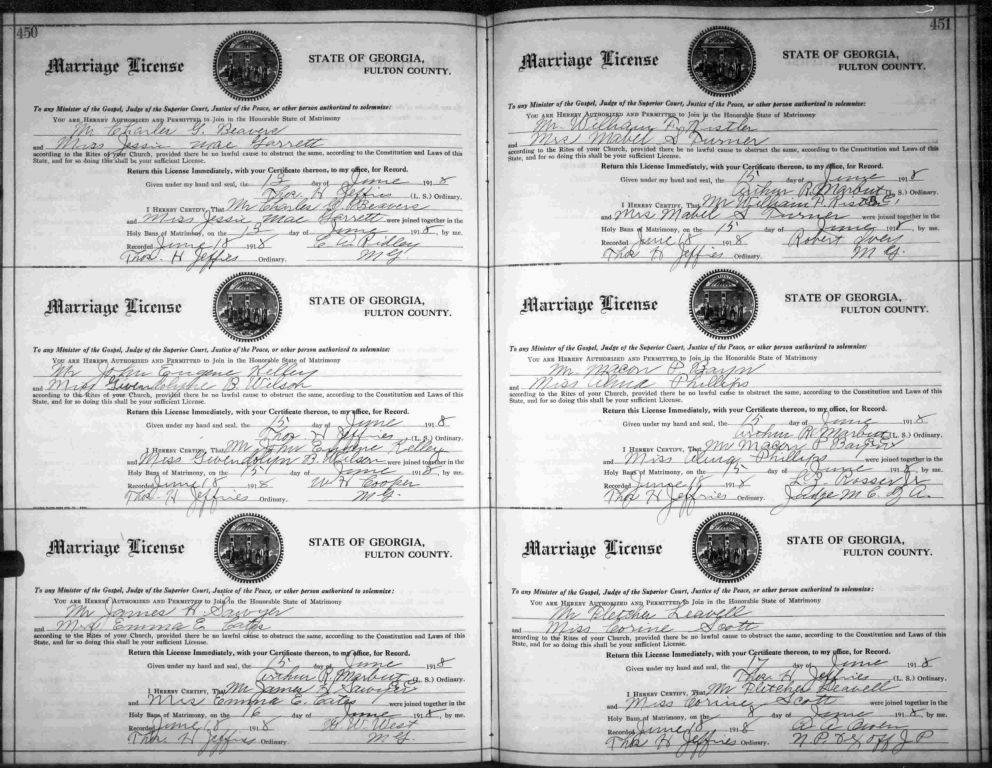 450
Marriage License
STATE OF GEORGIA,
FULTON COUNTY.
To any Minister of the Gospel, Judge of the Superior Court, Justice of the Peace, or other person authorized to solemnize:
YOU ARE HEREBY AUTHORIZED AND PERMITTED to Join in the Honorable State of Matrimony
Mr Charles G. Beavers
and Miss Jessie Mae Garrett
according to the Rites of your Church, provided there be no lawful cause to obstruct the same, according to the Constitution and Laws of this
State, and for so doing this shall be your sufficient License.
Return this License Immediately, with your Certificate thereon, to my office, for Record.
Given under my hand and seal, the 13 day of June 1918
Thos. H Jeffries (L. S.) Ordinary.
I HEREBY CERTIFY, That Mr Charles G. Beavers
and Miss Jessie Mae Garrett were joined together in the
Holy Bans of Matrimony, on the 13 day of June 1918, by me.
Recorded June 18 1918 Ridley
Thos. H Jeffries Ordinary. M G
Marriage License
STATE OF GEORGIA,
FULTON COUNTY.
To any Minister of the Gospel, Judge of the Superior Court, Justice of the Peace, or other person authorized to solemnize:
YOU ARE HEREBY AUTHORIZED AND PERMITTED to Join in the Honorable State of Matrimony
Mr John Eugene Kelley
and Miss B Wilson
according to the Rites of your Church, provided there be no lawful cause to obstruct the same, according to the Constitution and Laws of this
State, and for so doing this shall be your sufficient License.
Return this License Immediately, with your Certificate thereon, to my office, for Record.
Given under my hand and seal, the 15 day of June 1918
Thos. H Jeffries (L. S.) Ordinary.
I HEREBY CERTIFY, That Mr John Eugene Kelley
and Miss Gwendolyn B. Wilson were joined together in the
Holy Bans of Matrimony, on the 15 day of June 1918, by me.
Recorded June 18 1918 W H Cooper
Thos. H Jeffries Ordinary. M.G.
Marriage License
STATE OF GEORGIA,
FULTON COUNTY.
To any Minister of the Gospel, Judge of the Superior Court, Justice of the Peace, or other person authorized to solemnize:
YOU ARE HEREBY AUTHORIZED AND PERMITTED to Join in the Honorable State of Matrimony
Mr James H. Sawyer
and Mrs Emma E.
according to the Rites of your Church, provided there be no lawful cause to obstruct the same, according to the Constitution and Laws of this
State, and for so doing this shall be your sufficient License.
Return this License Immediately, with your Certificate thereon, to my office, for Record.
Given under my hand and seal, the 15 day of June 1918
Arthur R. Marbut (L. S.) Ordinary.
I HEREBY CERTIFY, That Mr James H Sawyer
and Mrs Emma E. were joined together in the
Holy Bans of Matrimony, on the 16 day of June 1918, by me.
Recorded June 18 1918 West
Thos. H Jeffries Ordinary. M.G.
451
Marriage License
STATE OF GEORGIA,
FULTON COUNTY.
To any Minister of the Gospel, Judge of the Superior Court, Justice of the Peace, or other person authorized to solemnize:
YOU ARE HEREBY AUTHORIZED AND PERMITTED to Join in the Honorable State of Matrimony
Mr William P.
and Mrs Mabel S Turner
according to the Rites of your Church, provided there be no lawful cause to obstruct the same, according to the Constitution and Laws of this
State, and for so doing this shall be your sufficient License.
Return this License Immediately, with your Certificate thereon, to my office, for Record.
Given under my hand and seal, the 15 day of June 1918
Arthur R. Marbut (L. S.) Ordinary.
I HEREBY CERTIFY, That Mr William P.
and Mrs Mabel S Turner were joined together in the
Holy Bans of Matrimony, on the 15 day of June 1918, by me.
Recorded June 18 1918 Robert
Thos H Jeffries Ordinary. M.G.
Marriage License
STATE OF GEORGIA,
FULTON COUNTY.
To any Minister of the Gospel, Judge of the Superior Court, Justice of the Peace, or other person authorized to solemnize:
YOU ARE HEREBY AUTHORIZED AND PERMITTED to Join in the Honorable State of Matrimony
Mr Macon P
and Miss Alma Phillips
according to the Rites of your Church, provided there be no lawful cause to obstruct the same, according to the Constitution and Laws of this
State, and for so doing this shall be your sufficient License.
Return this License Immediately, with your Certificate thereon, to my office, for Record.
Given under my hand and seal, the 15 day of June 1918
Arthur R. Marbut (L. S.) Ordinary.
I HEREBY CERTIFY, That Mr Macon P
and Miss Alma Phillips were joined together in the
Holy Bans of Matrimony, on the 15 day of June 1918, by me.
Recorded June 18 1918 L.Z. Rosser Jr
Thos H Jeffries Ordinary. Judge M.C. of A.
Marriage License
STATE OF GEORGIA,
FULTON COUNTY.
To any Minister of the Gospel, Judge of the Superior Court, Justice of the Peace, or other person authorized to solemnize:
YOU ARE HEREBY AUTHORIZED AND PERMITTED to Join in the Honorable State of Matrimony
Mr Fletcher Leavell
and Miss Corine Scott
according to the Rites of your Church, provided there be no lawful cause to obstruct the same, according to the Constitution and Laws of this
State, and for so doing this shall be your sufficient License.
Return this License Immediately, with your Certificate thereon, to my office, for Record.
Given under my hand and seal, the 17 day of June 1918
Thos H Jeffries (L. S.) Ordinary.
I HEREBY CERTIFY, That Mr Fletcher Leavell
and Miss Corine Scott were joined together in the
Holy Bans of Matrimony, on the 8 day of June 1918, by me.
Recorded June 18 1918
Thos H Jeffries Ordinary. N P & Ex off J P